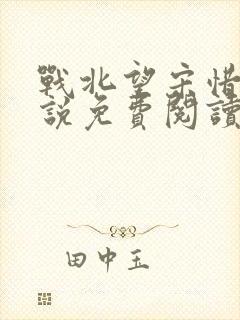 戰北望宋惜
說免費閱讀
田中玉